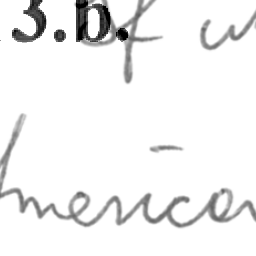 3.b. of
American